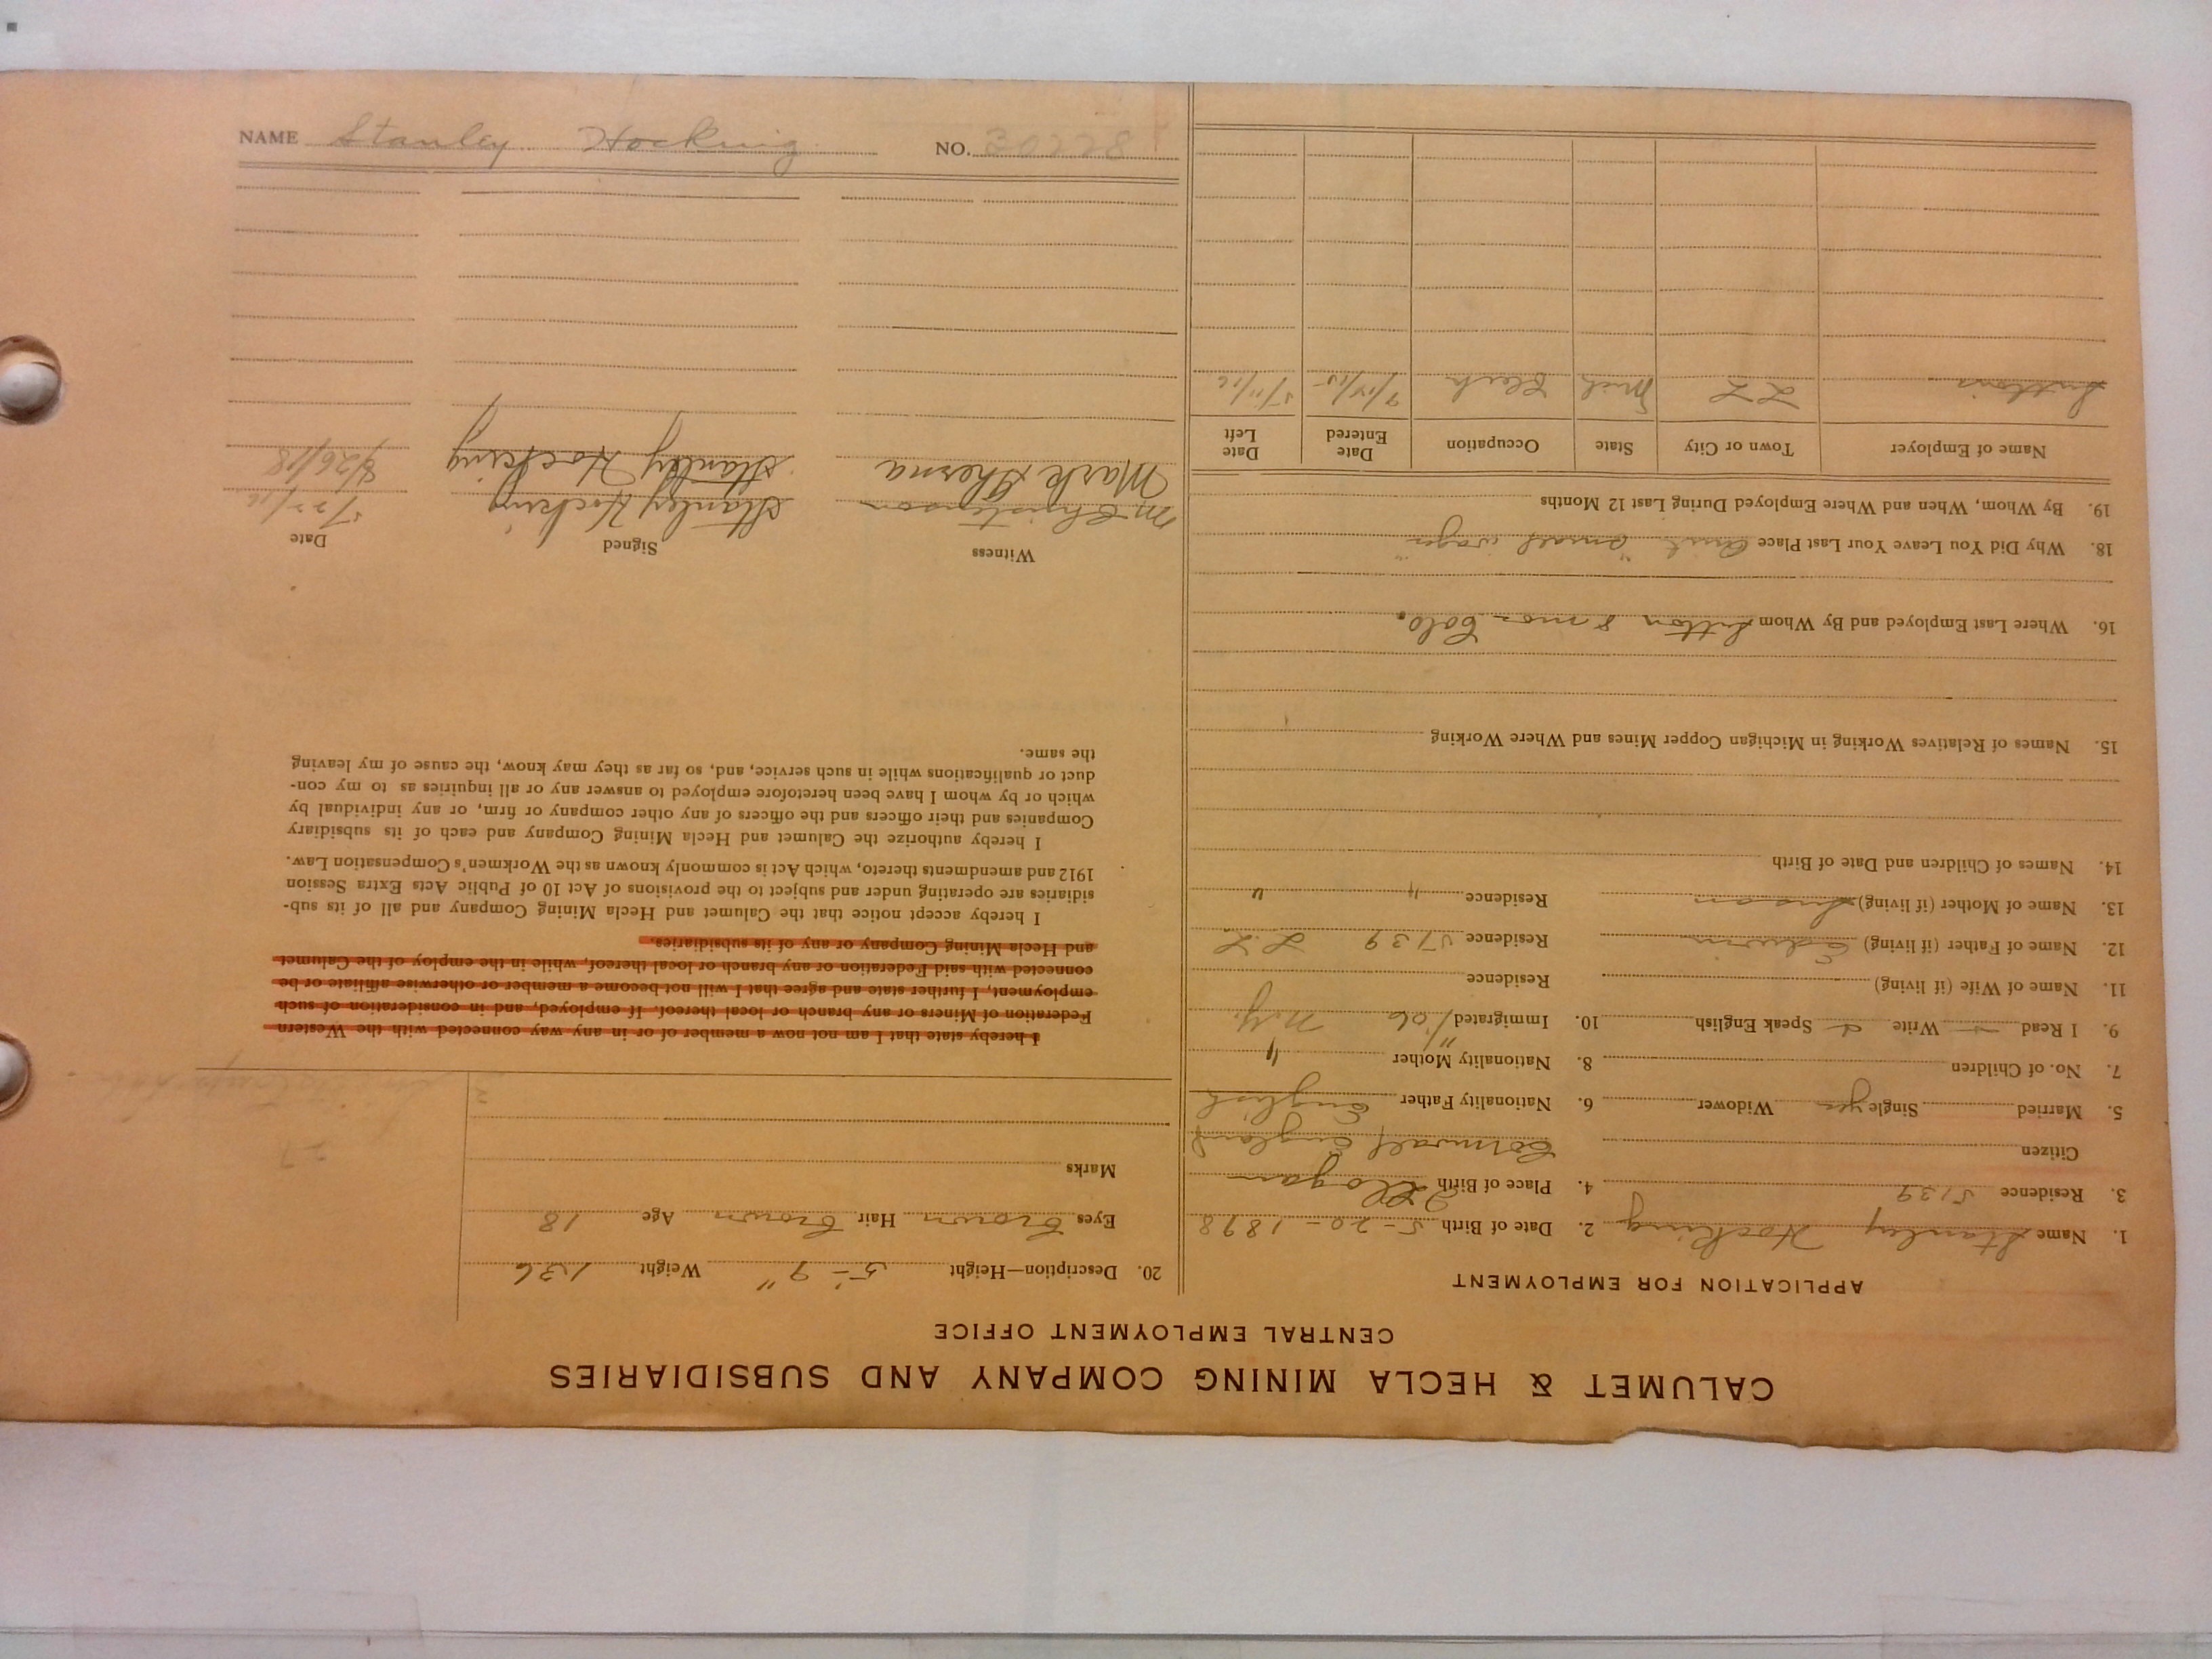 CALUMET & HECLA MINING COMPANY AND SUBSIDIARIES
CENTRAL EMPLOYMENT OFFICE
APPLICATION FOR EMPLOYMENT
1. Name Stanley Hocking 2. Date of Birth 5-20-1898
3. Residence 5139 4. Place of Birth Illogan
Citizen Cornwall England
5. Married Single yes Widower 6. Nationality Father English
7. No. of Children 8. Nationality Mother "
9. I Read Write Speak English 10. Immigrated N.Y.
11. Name of Wife (if living) Residence
12. Name of Father (if living) Edwin Residence 5139 LL
13. Name of Mother (if living) Susan Residence " "
14. Names of Children and Date of Birth
15. Names of Relatives Working in Michigan Copper Mines and Where Working
16. Where Last Employed and By Whom Sutton 8 mos
18. Why Did You Leave Your Last Place Quit "small wages"
19. By Whom, When and Where Employed During Last 12 Months
Name of Employer Town or City State Occupation Date Entered Date Left
LL Mich Clerk
20. Description—Height 5'-9" Weight 136
Eyes Brown Hair Brown Age 18
Marks
I hereby state that I am not now a member of or in any way connected with the Western
Federation of Miners or any branch or local thereof. If employed, and in consideration of such
employment, I further state and agree that I will not become a member or otherwise affiliate or be
connected with said Federation or any branch or local thereof, while in the employ of the Calumet
and Hecla Mining Company or any of its subsidiaries.
I hereby accept notice that the Calumet and Hecla Mining Company and all of its sub-
sidiaries are operating under and subject to the provisions of Act 10 of Public Acts Extra Session
1912 and amendments thereto, which Act is commonly known as the Workmen's Compensation Law.
I hereby authorize the Calumet and Hecla Mining Company and each of its subsidiary
Companies and their officers and the officers of any other company or firm, or any individual by
which or by whom I have been heretofore employed to answer any or all inquiries as to my con-
duct or qualifications while in such service, and, so far as they may know, the cause of my leaving
the same.
Witness Signed Date
M Christenson Stanley Hocking
Mark Stanley Hocking 8/26/18
NAME Stanley Hocking NO.